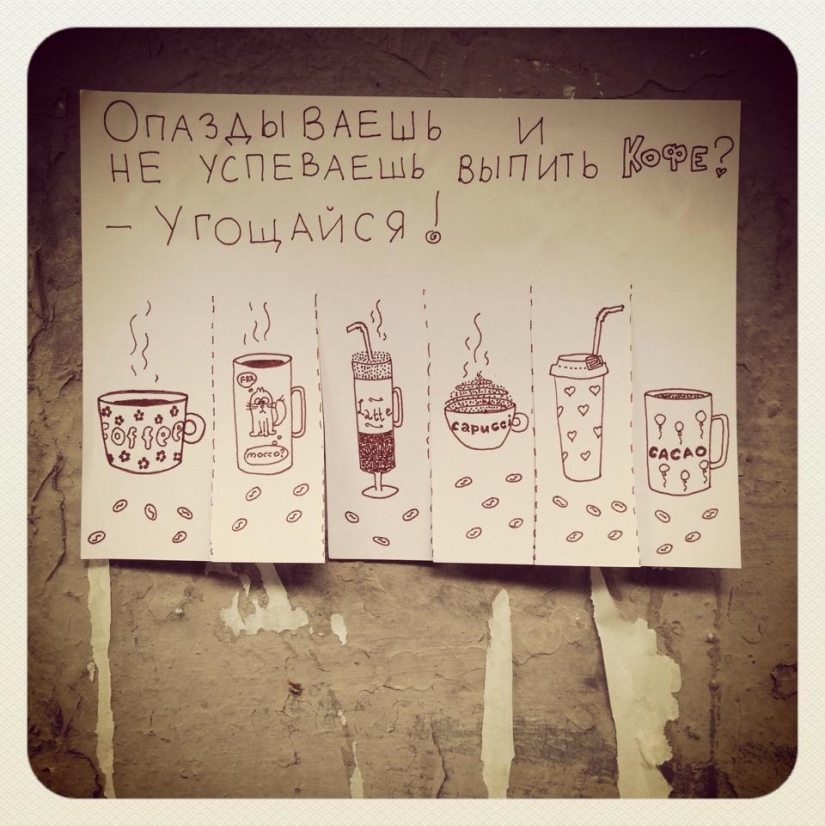 Опаздываешь и
не успеваешь выпить Кофе?
- Угощайся!
Coffee
FRR
mocco?
Latte
capucci
CACAO